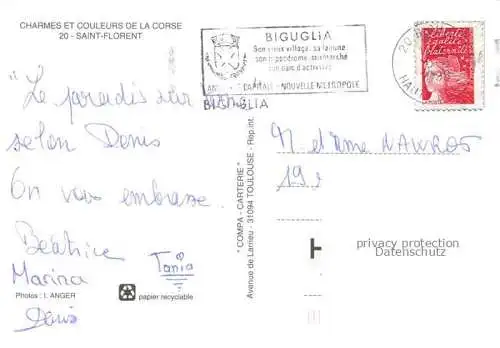 CHARMES ET COULEURS DE LA CORSE
20 - SAINT-FLORENT
BIGUGLIA
Son vieux village, sa lagune
son hippodrome, son marché
son parc d'activités
CAPITALE - NOUVELLE METROPOLE
BIGUGLIA
Liberté
égalité
fraternité
"Le paradis sur
selon Denis
On vous embrasse.
Béatrice
Marina
Tania
Denis
Photos : I. ANGER
papier recyclable
" COMPA - CARTERIE "
Avenue de Larrieu - 31094 TOULOUSE - Rep.int.
M et Mme NAWROT
19
privacy protection
Datenschutz